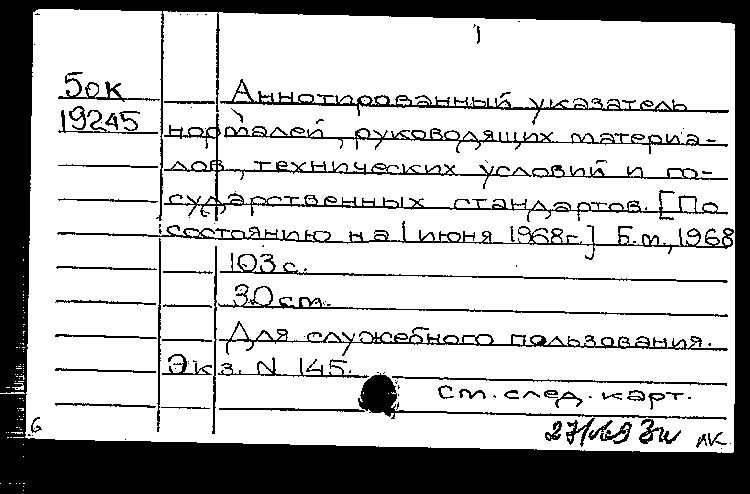 1
5ок Аннотированный указатель
19245 нормалей, руководящих материа-
лов, технических условий и го-
сударственных стандартов. [По
состоянию на 1 июня 1968г.] Б.м., 1968
103 с.
30 см.
Для служебного пользования.
Экз. N 145.
См. след. карт.
6 лк